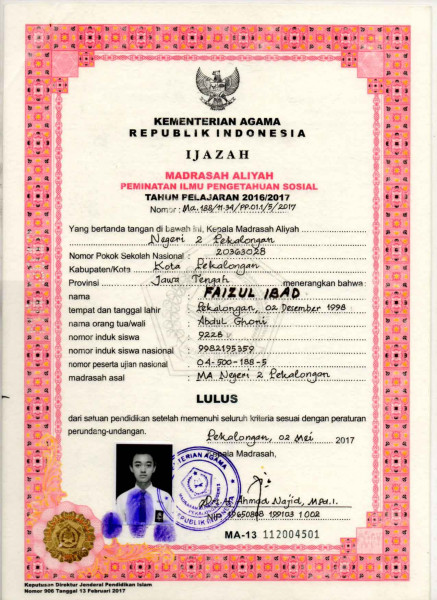 KEMENTERIAN AGAMA
REPUBLIK INDONESIA
IJAZAH
MADRASAH ALIYAH
PEMINATAN ILMU PENGETAHUAN SOSIAL
TAHUN PELAJARAN 2016/2017
Nomor : Ma.188/11.34/PP.01.1/5/2017
Yang bertanda tangan di bawah ini, Kepala Madrasah Aliyah
Negeri 2 Pekalongan
Nomor Pokok Sekolah Nasional : 20363028
Kabupaten/Kota : Kota Pekalongan
Provinsi : Jawa Tengah menerangkan bahwa:
nama : FAIZUL IBAD
tempat dan tanggal lahir : Pekalongan, 02 Desember 1998
nama orang tua/wali : Abdul Ghoni
nomor induk siswa : 9228
nomor induk siswa nasional : 9982195359
nomor peserta ujian nasional : 04-500-188-5
madrasah asal : MA Negeri 2 Pekalongan
LULUS
dari satuan pendidikan setelah memenuhi seluruh kriteria sesuai dengan peraturan
perundang-undangan.
Pekalongan, 02 Mei 2017
Kepala Madrasah,
KEMENTERIAN AGAMA
REPUBLIK INDONESIA
Ahmad Najid, M.Pd.I.
NIP 19650808 199103 1 002
MA-13 112004501
Keputusan Direktur Jenderal Pendidikan Islam
Nomor 906 Tanggal 13 Februari 2017